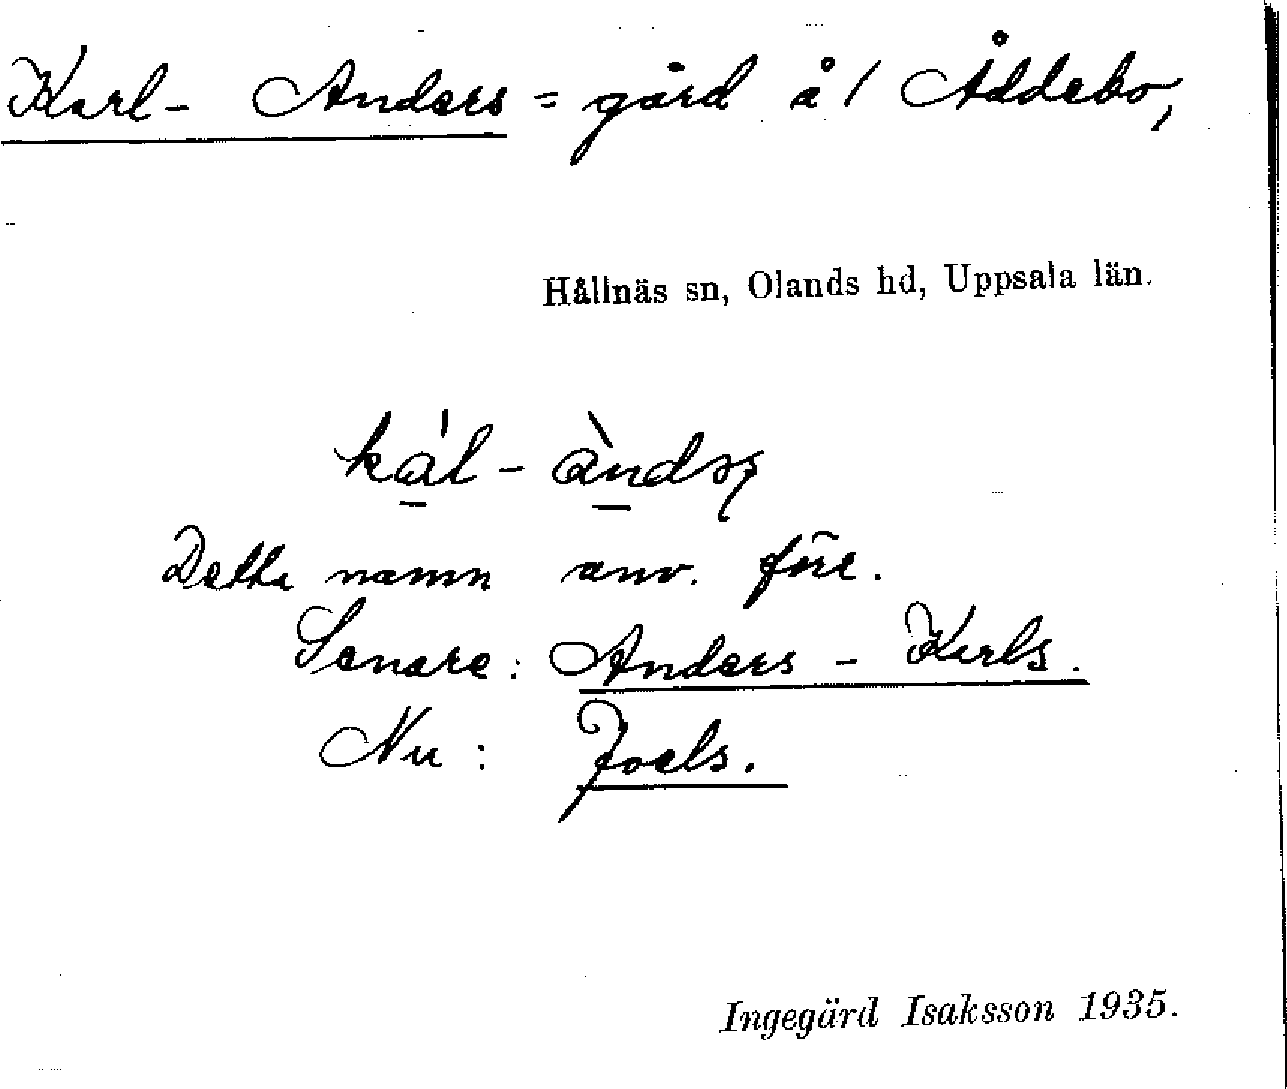 Karl-Anders = gård å / Åddebo,
Hållnäs sn, Olands hd, Uppsala län.
kál-àndsʂ
Detta namn anv. förr.
Senare: Anders-Karls.
Nu: Joels.
Ingegärd Isaksson 1935.